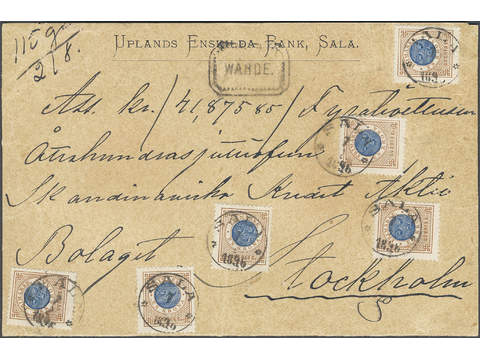 UPLANDS ENSKILDA BANK, SALA.
115 gr
2/8.
WANDE.
Ass. kr. 41875 85 / Fyratioettusen
Åttahundrasjuttiofem
Skandinaviska Kredit Aktie
Bolaget
Stockholm
SALA
1896
SALA
7
1896
SALA
1896
SALA
7
1896
SALA
1896
SALA
1896